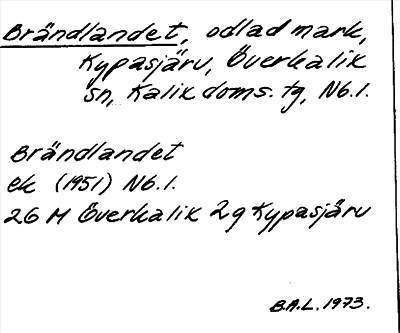 Brändlandet, odlad mark,
Kypasjärv, Överkalix
sn, Kalix doms. tg, Nb.l.
Brändlandet
ek (1951) Nb.l.
26 M Överkalix 2g Kypasjärv
B.A.L. 1973.